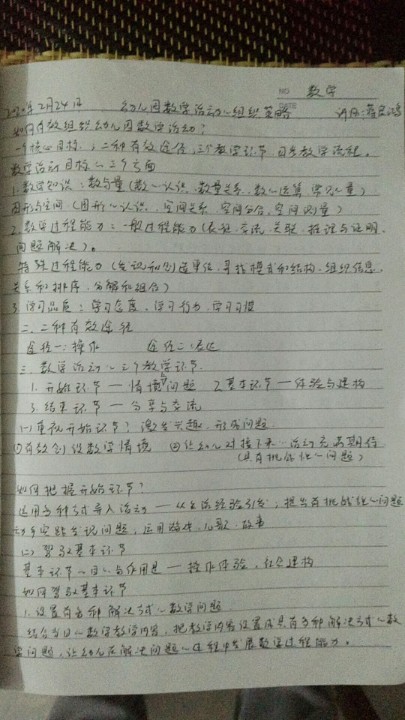 NO
数学
2020年2月24日 幼儿园数学活动~组织策略
如何有效组织幼儿园数学活动?
一个核心目标,二种有效途径,三个教学环节
数学活动目标~三个方面
1.数学知识:数与量(数~认识、数量关系、数~运算、常见~量)
图形与空间(图形~认识、空间关系、空间组合、空间测量)
2.数学过程能力:一般过程能力(表征、交流、关联、推理与证明、
问题解决)。
特殊过程能力(发现和创造单位、寻找模式和结构、组织信息、
关系和排序、分解和组合)
3.学习品质:学习态度、学习行为、学习习惯
二、二种有效途径
途径一:操作 途径二:表达
三、数学活动~三个教学环节
1.开始环节—情境问题 2.基本环节—体验与建构
3.结束环节—分享与交流
(一)重视开始环节:激发兴趣、形成问题
①有效创设数学情境 ②让幼儿对接下来~活动充满期待
(具有挑战性~问题)
如何把握开始环节?
运用多种方式导入活动——从生活经验引发,提出有挑战性~问题
动手实践发现问题,运用游戏、儿歌、故事
(二)
基本环节~目~与作用是—操作体验,社会建构
如何 基本环节
1.设置有多种解决方式~数学问题
结合当日~数学教学内容,把教学内容设置成具有多种解决方式~数
学问题,让幼儿在解决问题~过程中发展数学过程能力。